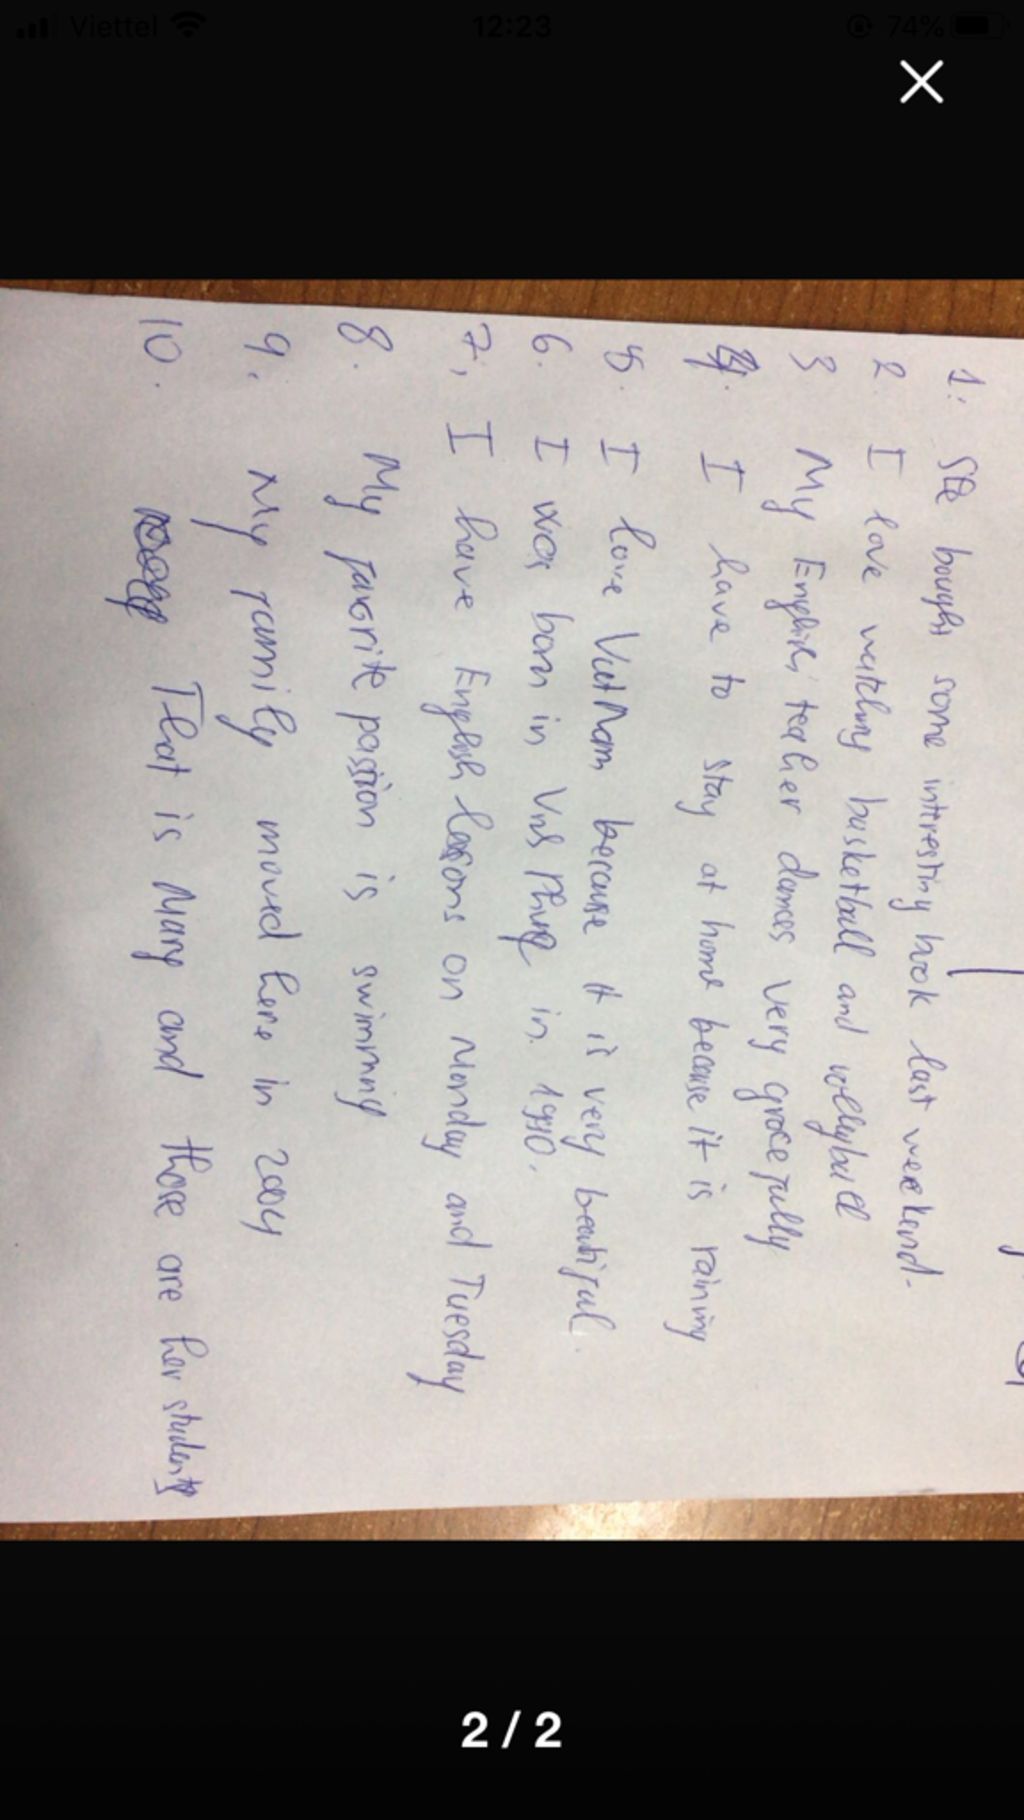 Viettel 12:23 74%
1. She bought some interesting book last weekend.
2. I love watching basketball and volleyball
3 My English teacher dances very gracefully
4. I have to stay at home because it is raining
5. I love Viet Nam because it is very beautiful.
6. I was born in in 1990.
7. I have English lessons on Monday and Tuesday
8. My favorite passion is swimming
9. My family moved here in 2004
10. That is Mary and those are her students
2 / 2